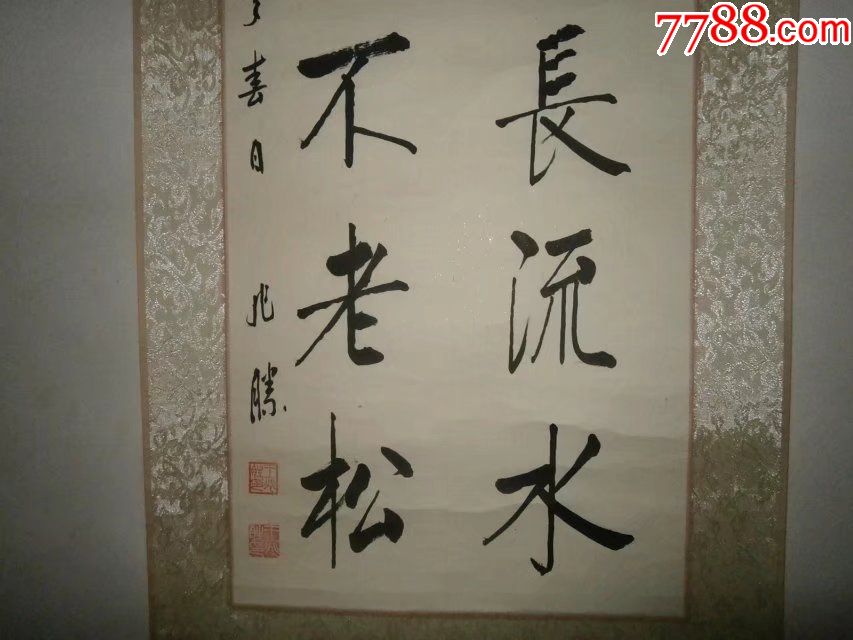 7788.com
長流水
不老松
春日 兆勝